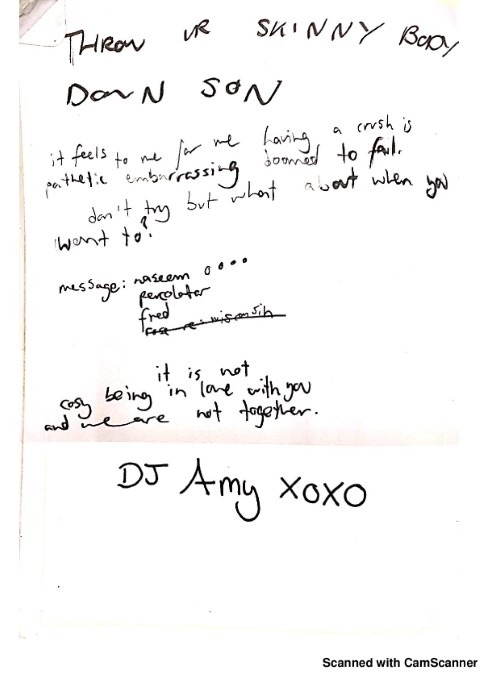 THROW UR SKINNY BODY
DOWN SON
it feels to me for me having a crush is
pathetic embarrassing doomed to fail.
don't try but what about when you
want to?
message: naseem
percolator
fred
it is not
cosy being in love with you
and we are not together.
DJ Amy XOXO
Scanned with CamScanner